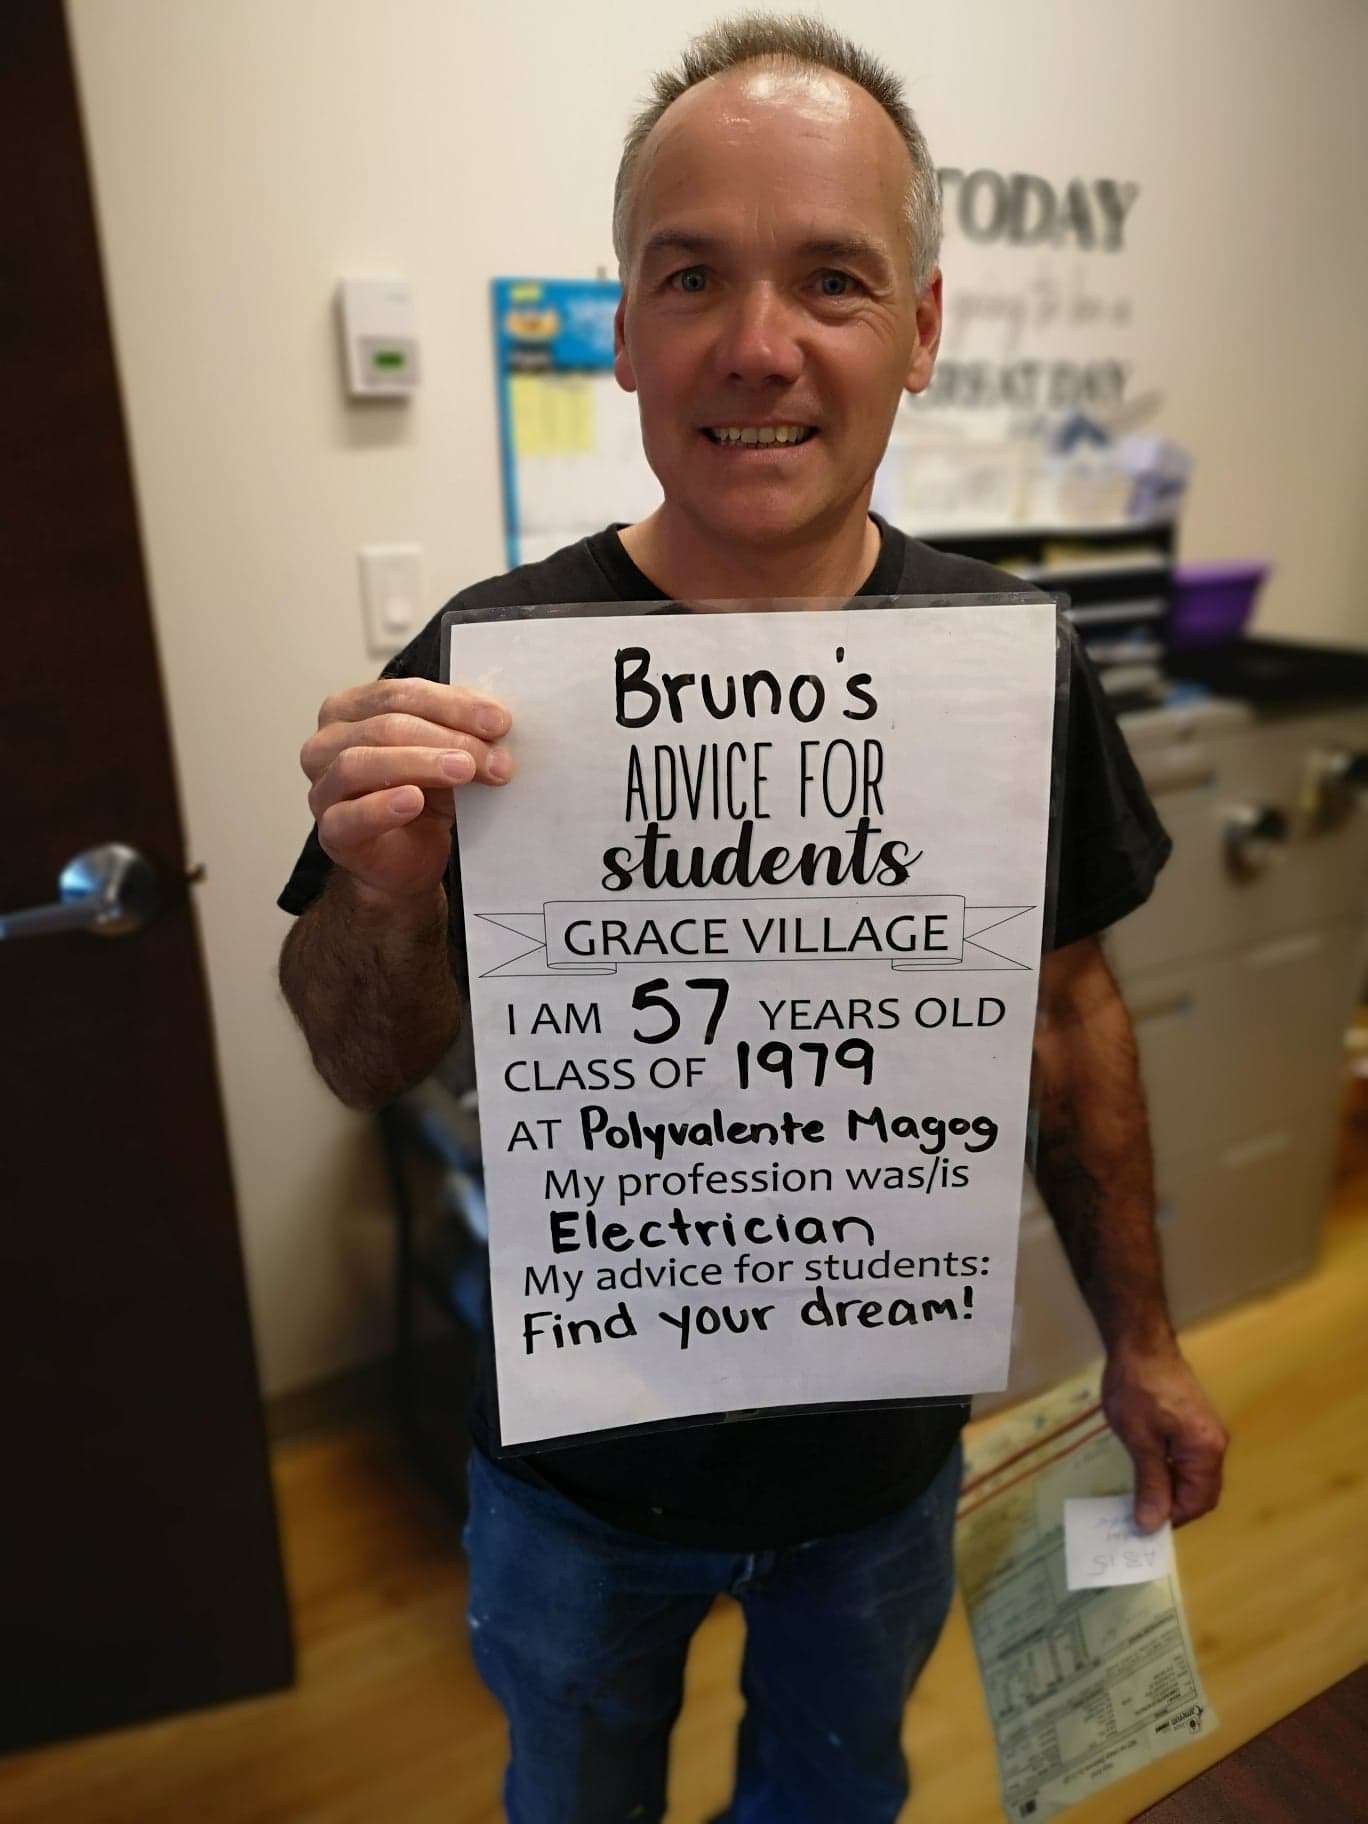 TODAY
going to be a
GREAT DAY
Bruno's
ADVICE FOR
students
GRACE VILLAGE
I AM 57 YEARS OLD
CLASS OF 1979
AT Polyvalente Magog
My profession was/is
Electrician
My advice for students:
Find your dream!